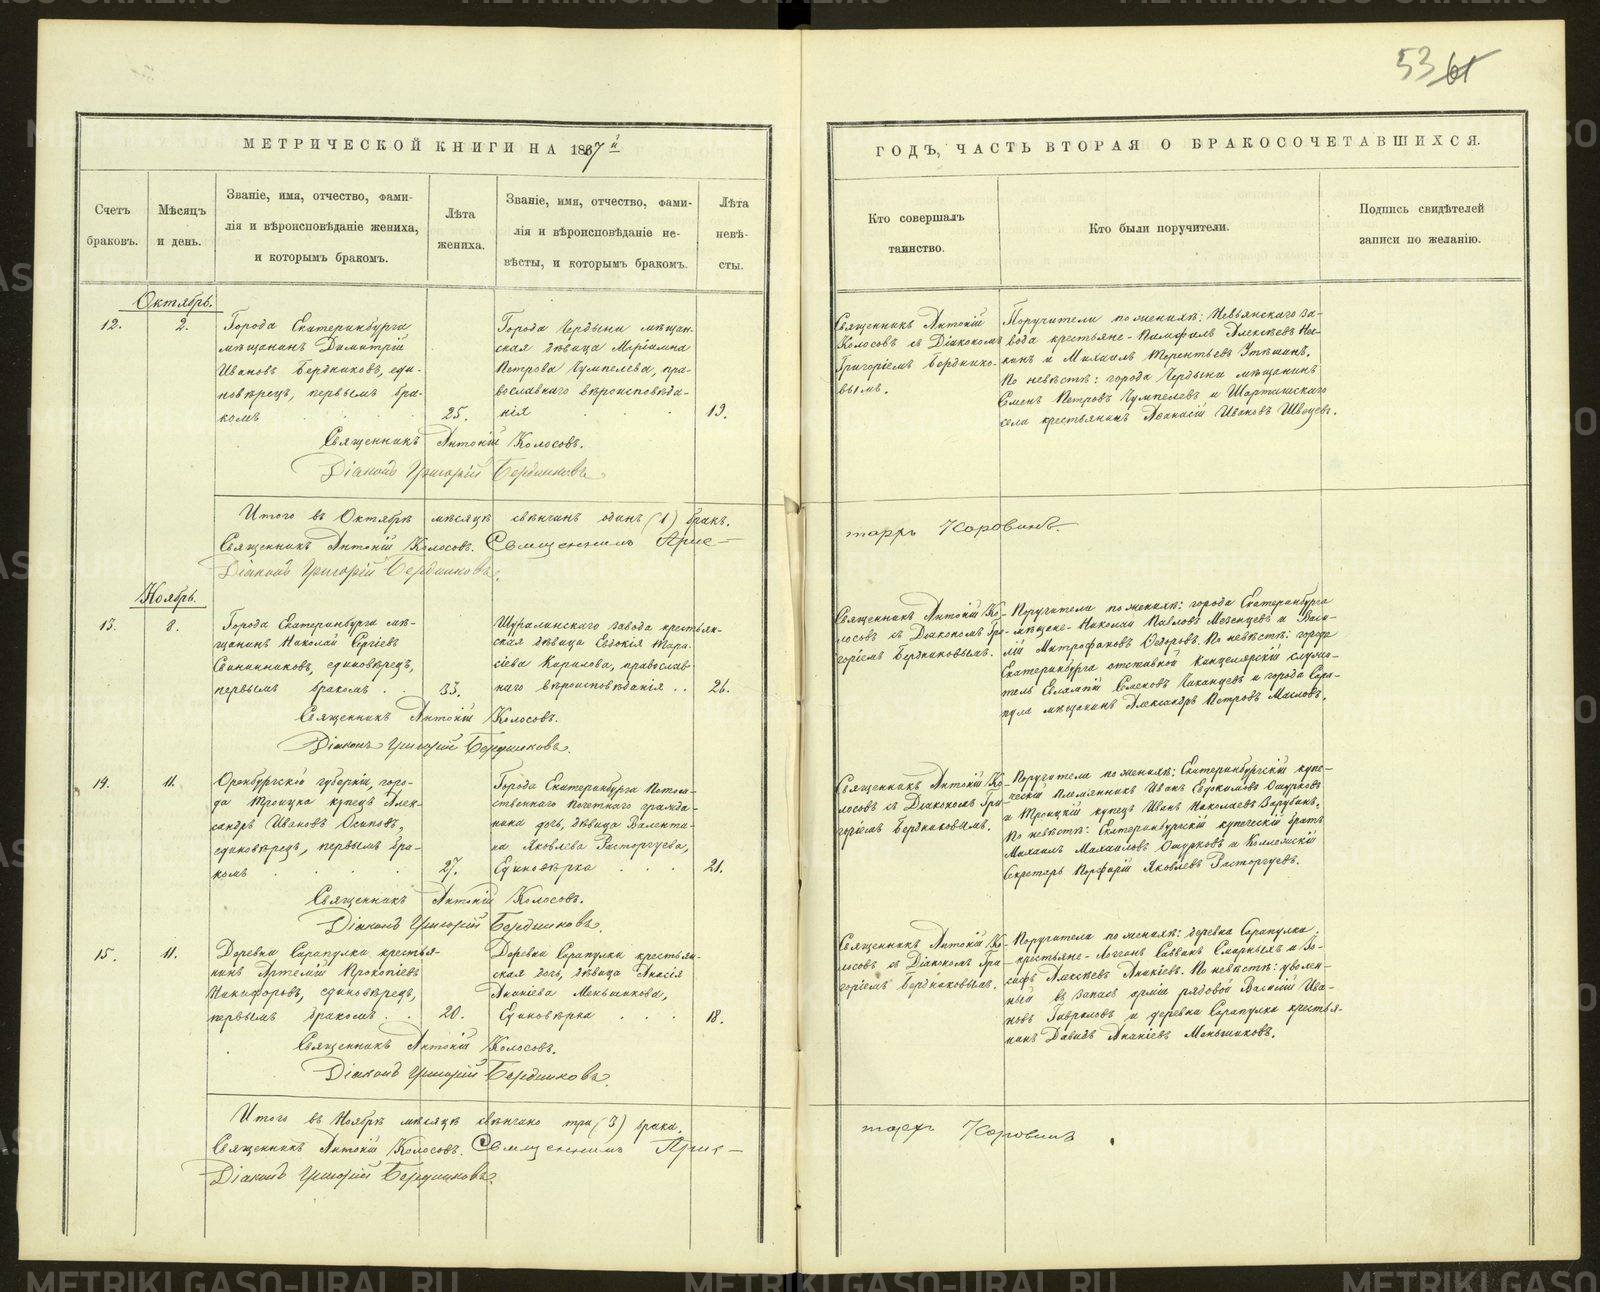 53 61
МЕТРИЧЕСКОЙ КНИГИ НА 1887й
ГОДЪ, ЧАСТЬ ВТОРАЯ О БРАКОСОЧЕТАВШИХСЯ.
Счетъ
браковъ.
Мѣсяцъ
и день.
Званіе, имя, отчество, фами-
лія и вѣроисповѣданіе жениха,
и которымъ бракомъ.
Лѣта
жениха.
Званіе, имя, отчество, фами-
лія и вѣроисповѣданіе не-
вѣсты, и которымъ бракомъ.
Лѣта
невѣ-
сты.
Кто совершалъ
таинство.
Кто были поручители.
Подпись свидѣтелей
записи по желанію.
Октябрь.
12.
2.
Города Екатеринбурга
мѣщанинъ Димитрій
Ивановъ Бердниковъ, еди-
новѣрецъ, первымъ бра-
комъ
25.
Города Чердыни мѣщан-
ская дѣвица Маріамна
Петрова Чумпелева, пра-
вославнаго вѣроисповѣда-
нія
19.
Священникъ Антоній
Колосовъ съ Діакономъ
Григоріемъ Бердни­ко-
вымъ.
Поручители по женихѣ: Невьянскаго за-
вода крестьяне - Памфилъ Алексѣевъ
и Михаилъ Терентьевъ
По невѣстѣ: города Чердыни мѣщанинъ
Семенъ Петровъ Чумпелевъ и Шарташскаго
села крестьянинъ Аѳанасій Ивановъ Швецовъ.
Священникъ Антоній Колосовъ.
Діаконъ Григорій Бердниковъ.
Итого въ Октябрѣ мѣсяцѣ вѣнчанъ одинъ (1) бракъ.
Священникъ Антоній Колосовъ. Священникъ Арис-
тархъ Коровинъ
Діаконъ Григорій Бердниковъ.
Ноябрь.
13.
8.
Города Екатеринбурга мѣ-
щанинъ Николай Сергіевъ
единовѣрецъ,
первымъ бракомъ
33.
Шуралинскаго завода крестьян-
ская дѣвица Евдокія Тара-
сіева Карпова, православ-
наго вѣроисповѣданія
26.
Священникъ Антоній Ко-
лосовъ съ Діакономъ Гри-
горіемъ Бердниковымъ.
Поручители по женихѣ: города Екатеринбурга
мѣщане - Николай Павловъ Мезенцевъ и Васи-
лій Митрофановъ Ѳедоровъ. По невѣстѣ: города
Екатеринбурга отставной канцелярскій служи-
тель Евлампій Семеновъ и города Сара-
пула мѣщанинъ Александръ Петровъ Масловъ.
Священникъ Антоній Колосовъ.
Діаконъ Григорій Бердниковъ.
14.
11.
Оренбургской губерніи, горо-
да Троицка купецъ Алек-
сандръ Ивановъ Осиповъ,
единовѣрецъ, первымъ бра-
комъ
27.
Города Екатеринбурга Потом-
ственнаго Почетнаго гражда-
нина дочь, дѣвица Валенти-
на Яковлева Расторгуева,
Единовѣрка
21.
Священникъ Антоній Ко-
лосовъ съ Діакономъ Гри-
горіемъ Бердниковымъ.
Поручители по женихѣ: Екатеринбургскій купе-
ческій племянникъ Иванъ Евдокимовъ Ошурковъ
и Троицкій купецъ Иванъ Николаевъ Зарубинъ.
По невѣстѣ: Екатеринбургскій купеческій братъ
Михаилъ Михаиловъ Ошурковъ и Коллежскій
Секретарь Порфирій Яковлевъ Расторгуевъ.
Священникъ Антоній Колосовъ.
Діаконъ Григорій Бердниковъ.
15.
11.
Деревни Сарапулки крестья-
нинъ Артемій Прокопіевъ
Никифоровъ, единовѣрецъ,
первымъ бракомъ
20.
Деревни Сарапулки крестьян-
ская дочь, дѣвица Анисія
Ананіева Меньшикова,
Единовѣрка
18.
Священникъ Антоній Ко-
лосовъ съ Діакономъ Гри-
горіемъ Бердниковымъ.
Поручители по женихѣ: деревни Сарапулки
крестьяне - Логгинъ Саввинъ Смирныхъ и Іо-
сифъ Алексѣевъ Ананіевъ. По невѣстѣ: уволен-
ный въ запасъ арміи рядовой Василій Ива-
новъ Гавриловъ и деревни Сарапулки крестья-
нинъ Давидъ Ананіевъ Меньшиковъ.
Священникъ Антоній Колосовъ.
Діаконъ Григорій Бердниковъ.
Итого въ Ноябрѣ мѣсяцѣ вѣнчано три (3) брака.
Священникъ Антоній Колосовъ. Священникъ Арис-
тархъ Коровинъ
Діаконъ Григорій Бердниковъ.
METRIKI.GASO-URAL.RU